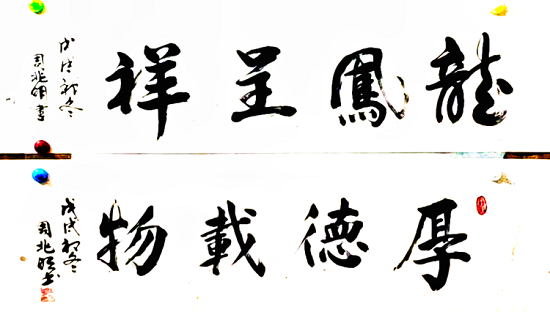 龍鳳呈祥
戊戌初冬
周兆明書
厚德載物
戊戌初冬
周兆明書